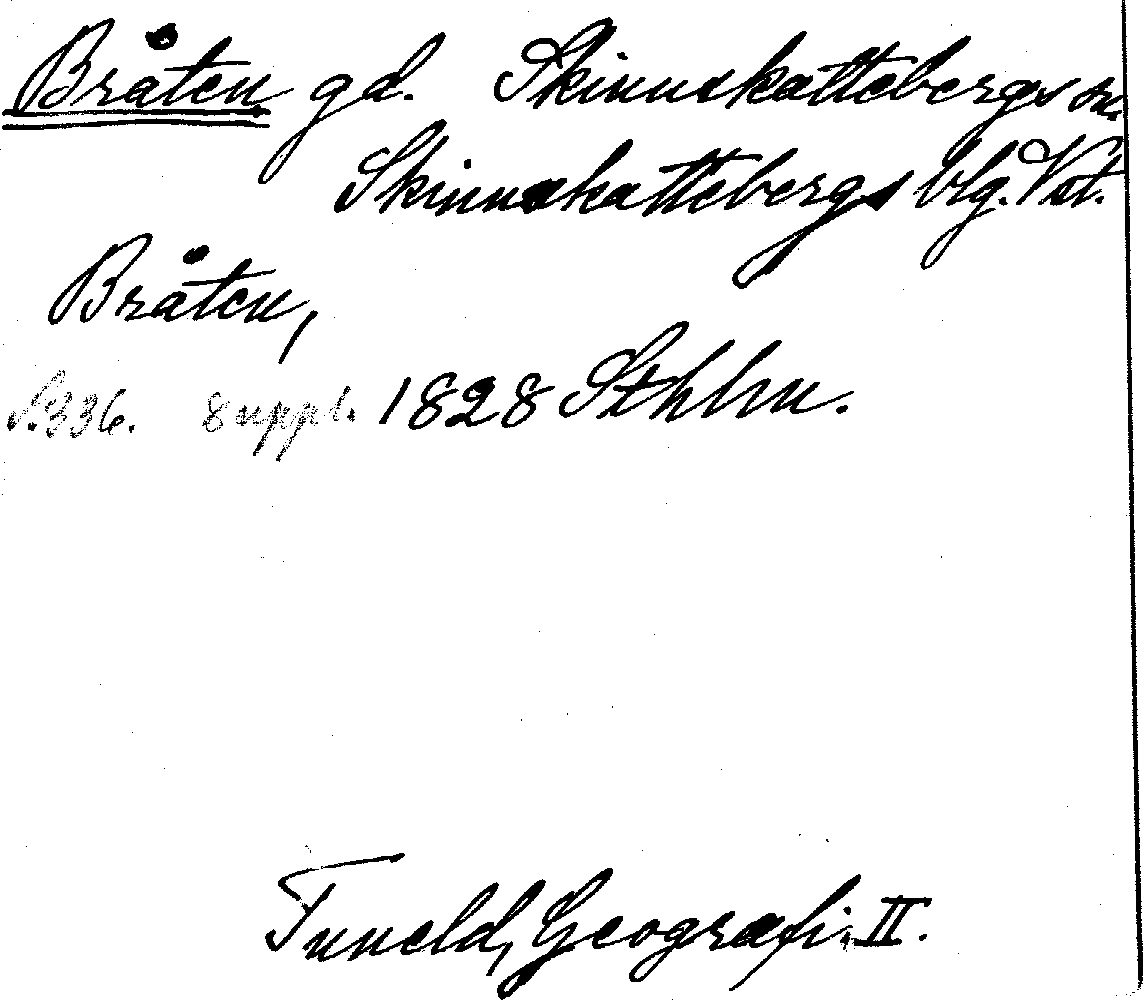 Bråten gd. Skinnskattebergs sn.
Skinnskattebergs blg. Vst.
Bråten,
S.336. 8 uppl. 1828 Sthlm.
Tuneld, Geografi. II.